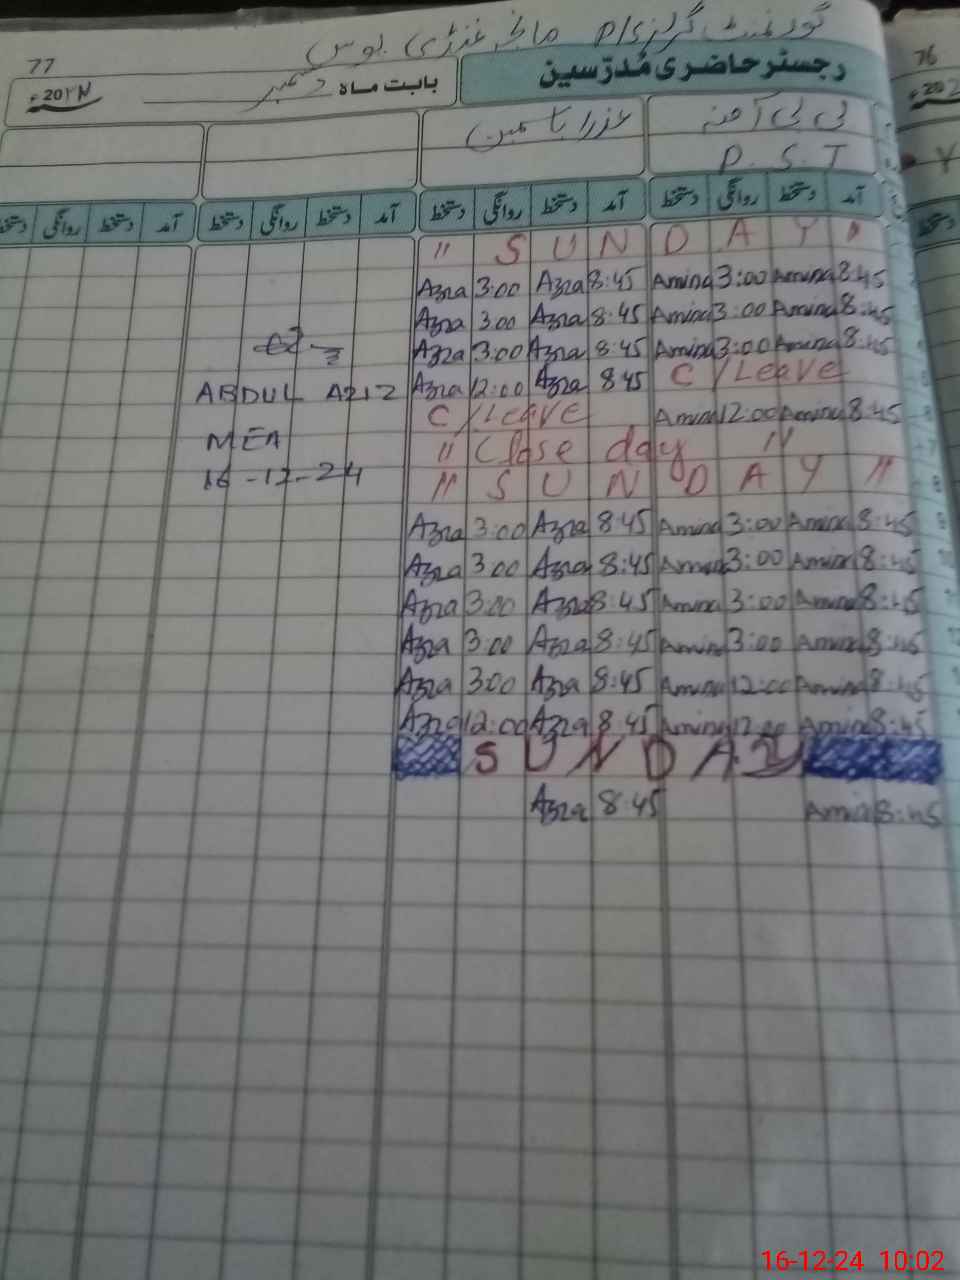 گورنمنٹ گرلز P/S
77
رجسٹر حاضری مُدرّسین
بابت ماہ دسمبر
2024ء
76
بی بی آمنہ
عذرا یاسمین
P.S.T
آمد دستخط روانگی دستخط آمد دستخط روانگی دستخط آمد دستخط روانگی دستخط آمد دستخط روانگی دستخط
" S U N D A Y "
Azra 3:00 Azra 8:45 Amina 3:00 Amina 8:45
Azra 3:00 Azra 8:45 Amina 3:00 Amina 8:45
Azra 3:00 Azra 8:45 Amina 3:00 Amina 8:45
ABDUL AZIZ Azra 12:00 Azra 8:45 C/Leave
C/Leave Amina 12:00 Amina 8:45
MEA " Close day "
16-12-24 " S U N D A Y "
Azra 3:00 Azra 8:45 Amina 3:00 Amina 8:45
Azra 3:00 Azra 8:45 Amina 3:00 Amina 8:45
Azra 3:00 Azra 8:45 Amina 3:00 Amina 8:45
Azra 3:00 Azra 8:45 Amina 3:00 Amina 8:45
Azra 3:00 Azra 8:45 Amina 12:00 Amina 8:45
Azra 12:00 Azra 8:45 Amina 12:00 Amina 8:45
S U N D A Y
Azra 8:45 Amina 8:45
16-12-24 10:02